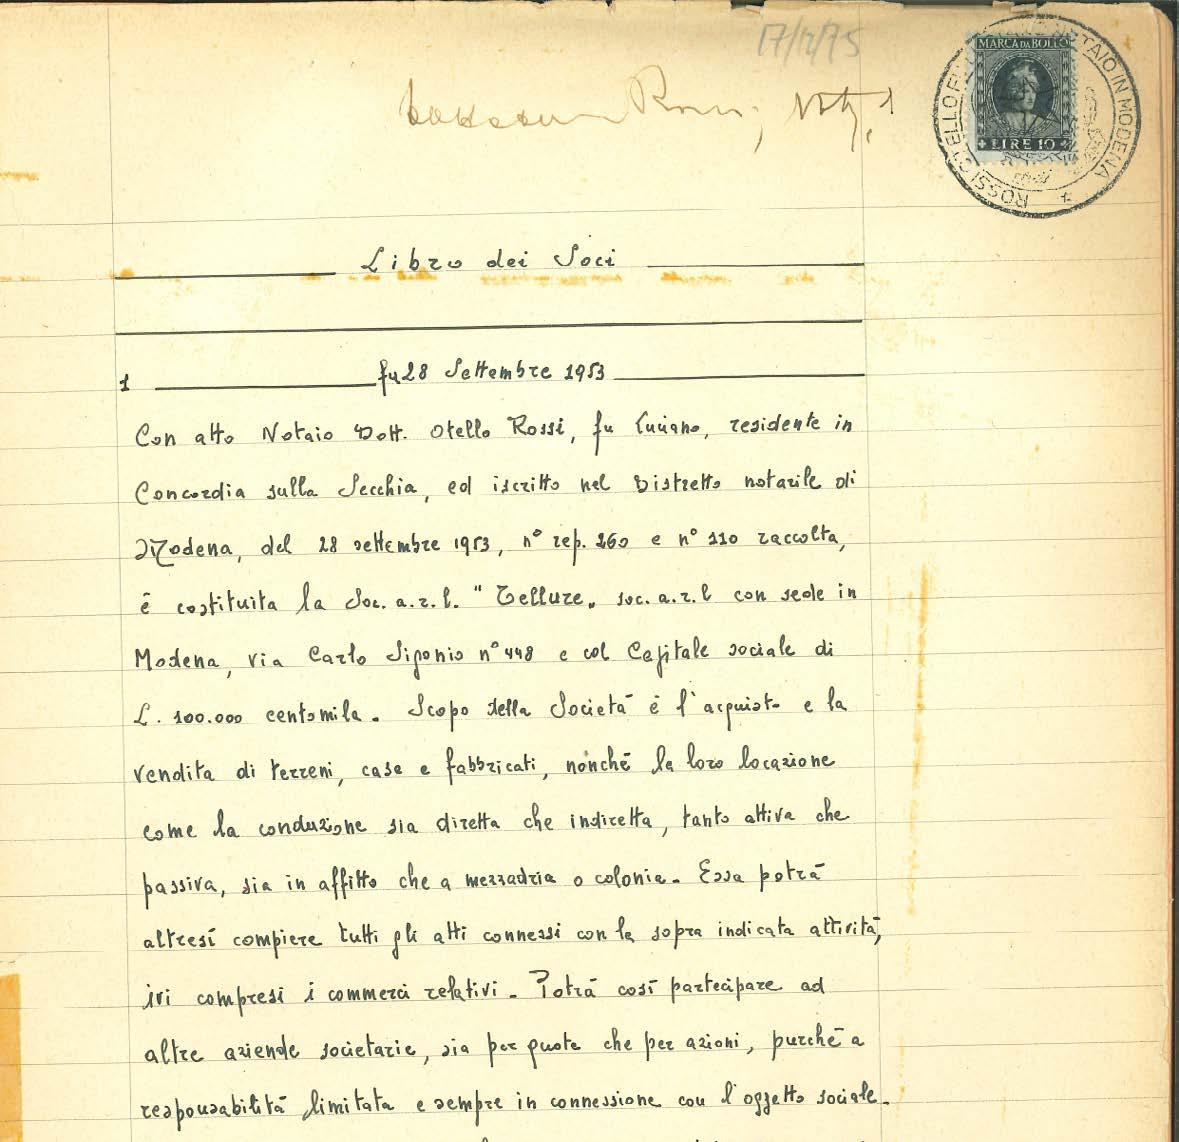 17/12/75
Rossi,
MARCA DA BOLLO
LIRE 10
ROSSI OTELLO NOTAIO IN MODENA
Libro dei Soci
1 fu 28 Settembre 1953
Con atto Notaio Dott. Otello Rossi, fu Luciano, residente in
Concordia sulla Secchia, ed iscritto nel Distretto notarile di
Modena, del 28 settembre 1953, n° rep. 260 e n° 110 raccolta,
è costituita la Soc. a.r.l. "Tellure„ soc. a.r.l con sede in
Modena, via Carlo Sigonio n° 448 e col Capitale sociale di
L. 100.000 centomila. Scopo della Società è l'acquisto e la
vendita di terreni, case e fabbricati, nonchè la loro locazione
come la conduzione sia diretta che indiretta, tanto attiva che
passiva, sia in affitto che a mezzadria o colonia. Essa potrà
altresì compiere tutti gli atti connessi con la sopra indicata attività,
ivi compresi i commerci relativi. Potrà così partecipare ad
altre aziende societarie, sia per quote che per azioni, purchè a
responsabilità limitata e sempre in connessione con l'oggetto sociale.